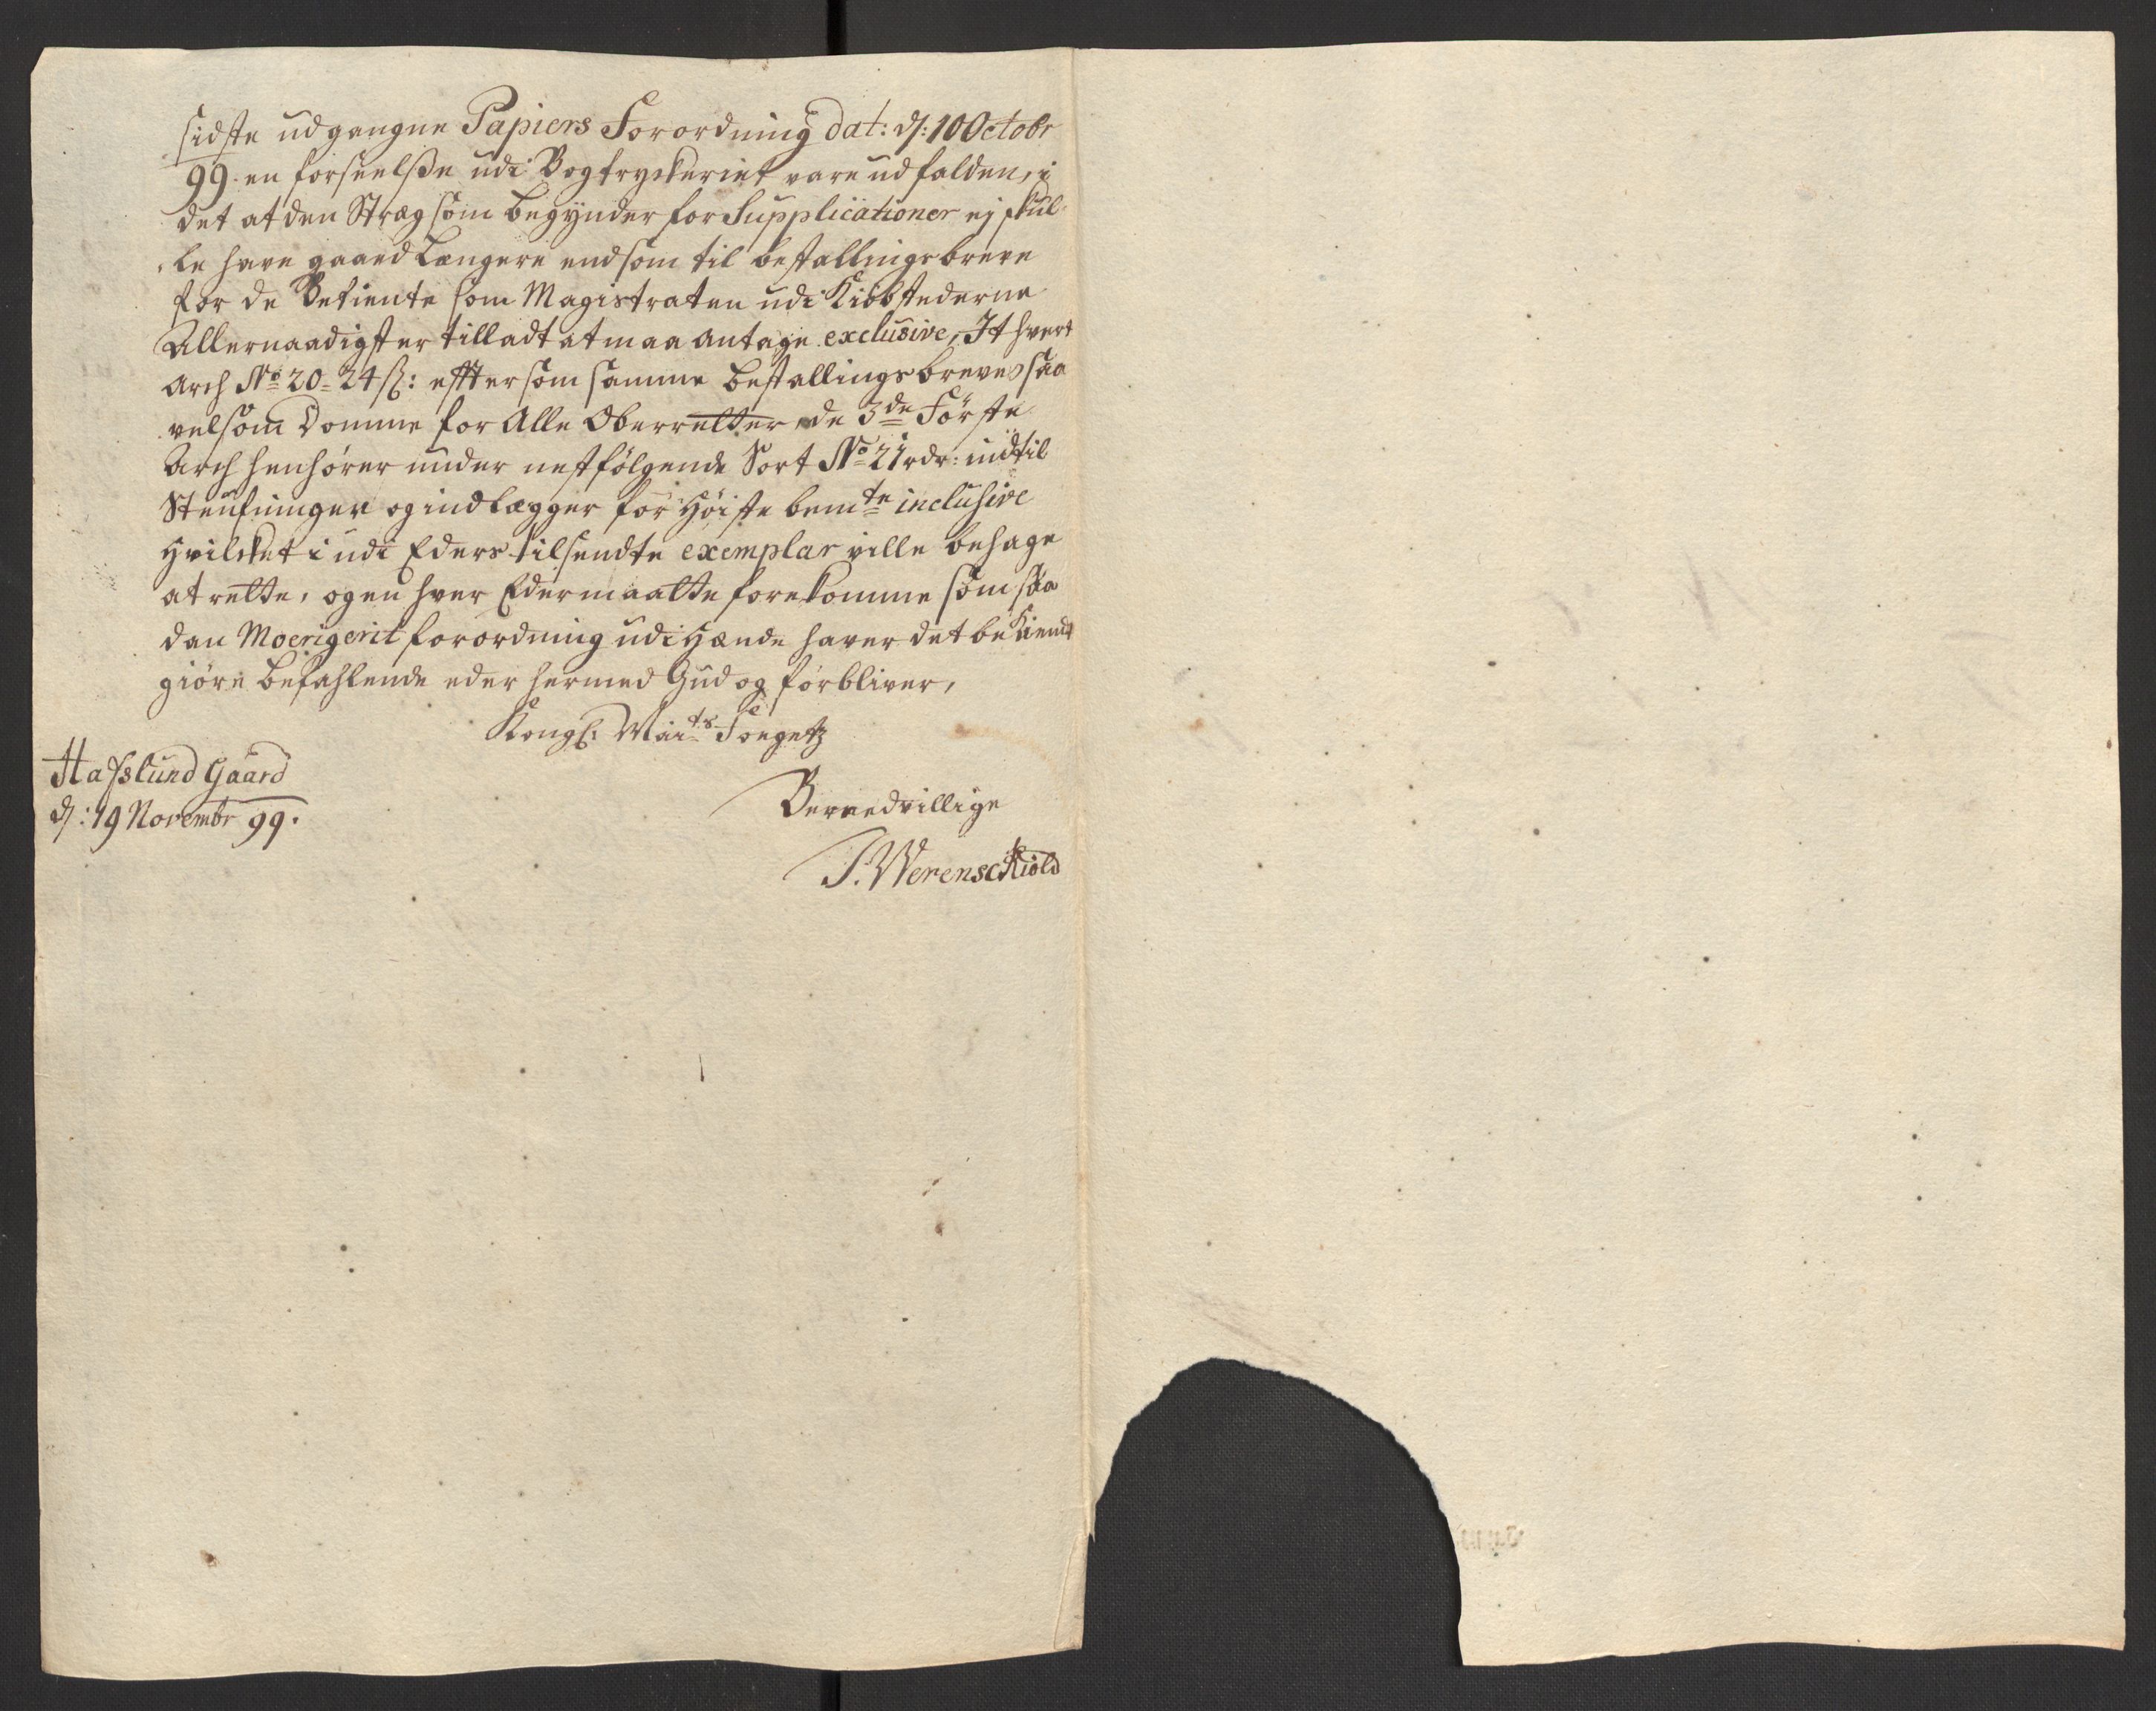 sidste udgangne Papiers Forordning dat: d: 10 Octobr
99. en forseelsse udi Bogtryckeriet vare udfalden, i
det at den Streg som begynder for Supplicationer ej skul-
le have gaaed Længere end som til bestallingsbreve
for de Betiente som Magistraten udi Kiöbstederne
Allernaadigst er tilladt at maa antage exclusive, It hvert
Arch No 20 - 24 ß: efftersom samme bestallingsbreve saa
velsom Domme for Alle Oberretter de 3de Förste
Arch henhører under nestfölgende Sort No 21 rdr: indtil
Steufninger og indlægger for Höiste bemte inclusive
Hvilcket i udi Eders tilsendte exemplar ville behage
at rette, og en hver Eder maatte forekomme som saa
dan forordning udi Hænde haver det bekiendt
giöre befahlende eder hermed Gud og forbliver,
Kongl: Maits Foegetz
Hafslund Gaard
d: 19 Novembr 99.
Beredvillige
Werenschiold